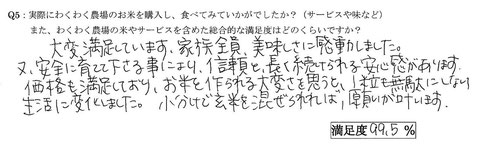 Q5：実際にわくわく農場のお米を購入し、食べてみていかがでしたか？（サービスや味など）
また、わくわく農場の米やサービスを含めた総合的な満足度はどのくらいですか？
大変満足しています。家族全員、美味しさに感動しました。
又、安全に育て下さる事により、信頼と、長く続けられる安心感があります。
価格も満足しており、お米を作られる大変さを思うと、1粒も無駄にしない
生活に変化しました。小分けで玄米を混ぜられれば、願いが叶います。
満足度 99.5 %